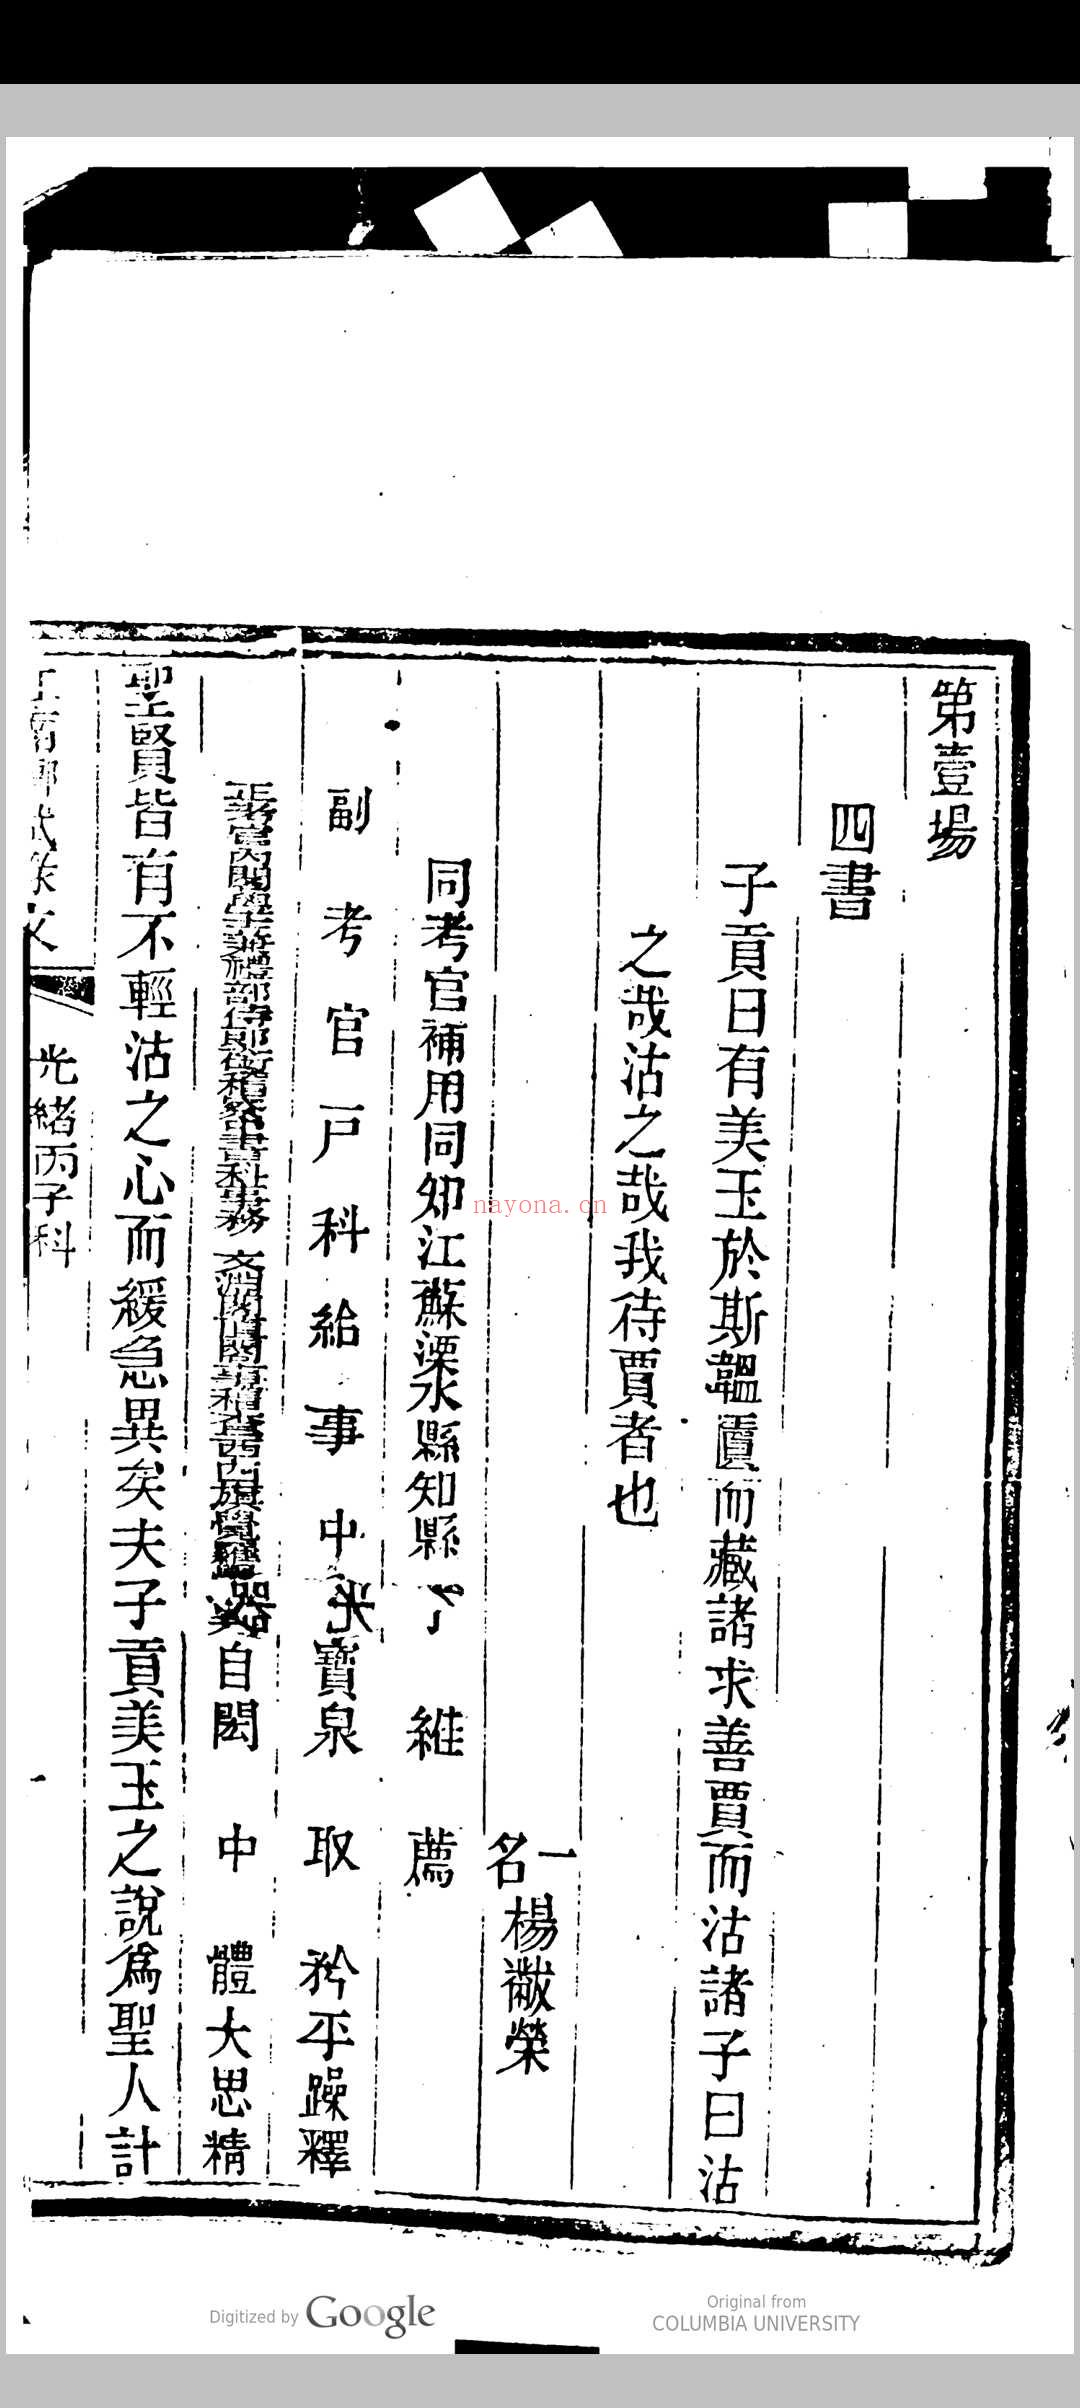 第壹場
四書
子貢曰有美玉於斯韞匵而藏諸求善賈而沽諸子曰沽
之哉沽之哉我待賈者也
一名楊黻榮
同考官補用同知江蘇溧水縣知縣丁 維 薦
副考官戶科給事中 寶泉 取 矜平躁釋
自閎 中 體大思精
聖賢皆有不輕沽之心而緩急異矣夫子貢美玉之說為聖人計
江南鄉試硃文 光緒丙子科
nayona.cn
Digitized by Google
Original from
COLUMBIA UNIVERSITY